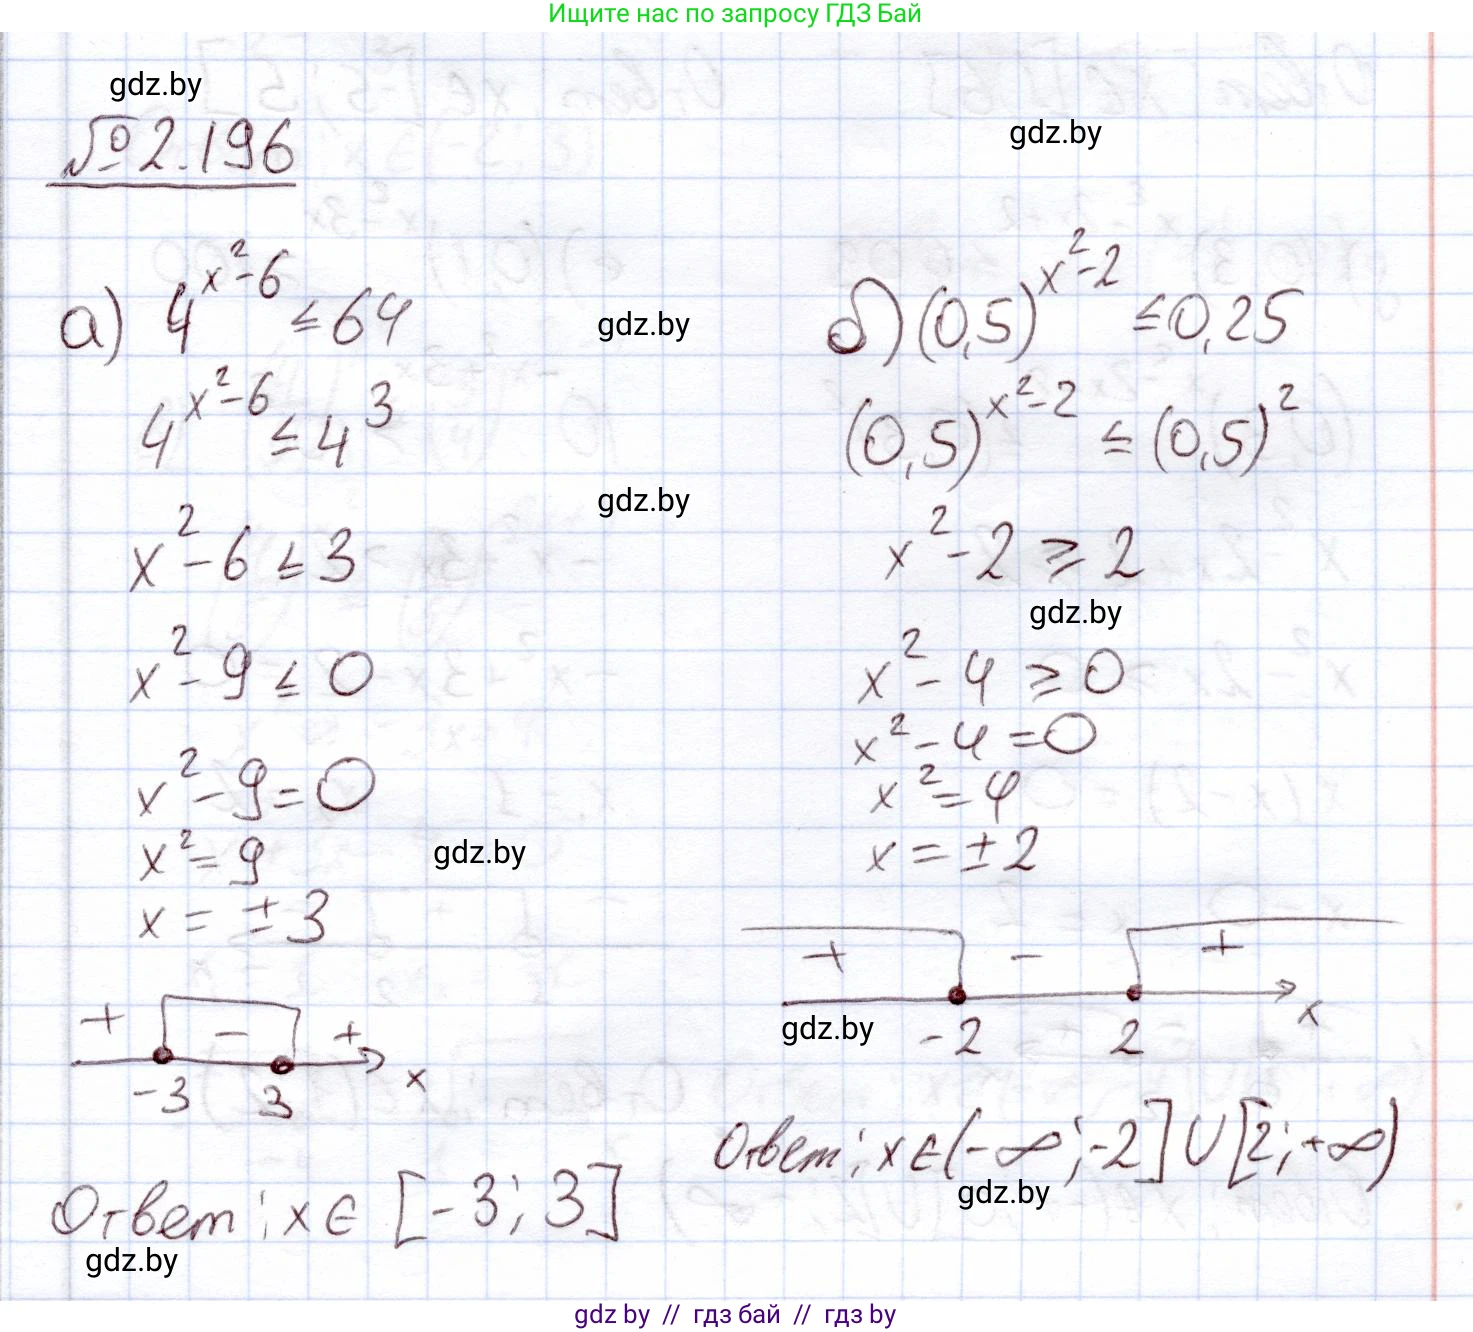 Ищите нас по запросу ГДЗ Бай
gdz.by
№ 2.196
gdz.by
а) 4^{x²-6} ≤ 64
gdz.by
4^{x²-6} ≤ 4³
gdz.by
x² - 6 ≤ 3
x² - 9 ≤ 0
x² - 9 = 0
x² = 9
gdz.by
x = ± 3
+ - +
-3 3 x
Ответ: x ∈ [-3; 3]
gdz.by
б) (0,5)^{x²-2} ≤ 0,25
(0,5)^{x²-2} ≤ (0,5)²
x² - 2 ≥ 2
gdz.by
x² - 4 ≥ 0
x² - 4 = 0
x² = 4
x = ± 2
+ - +
gdz.by
-2 2 x
Ответ: x ∈ (-∞; -2] ∪ [2; +∞)
gdz.by
gdz by // гдз бай // гдз by